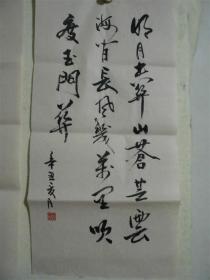 明月出天山蒼茫雲
海間長風幾萬里吹
度玉門關